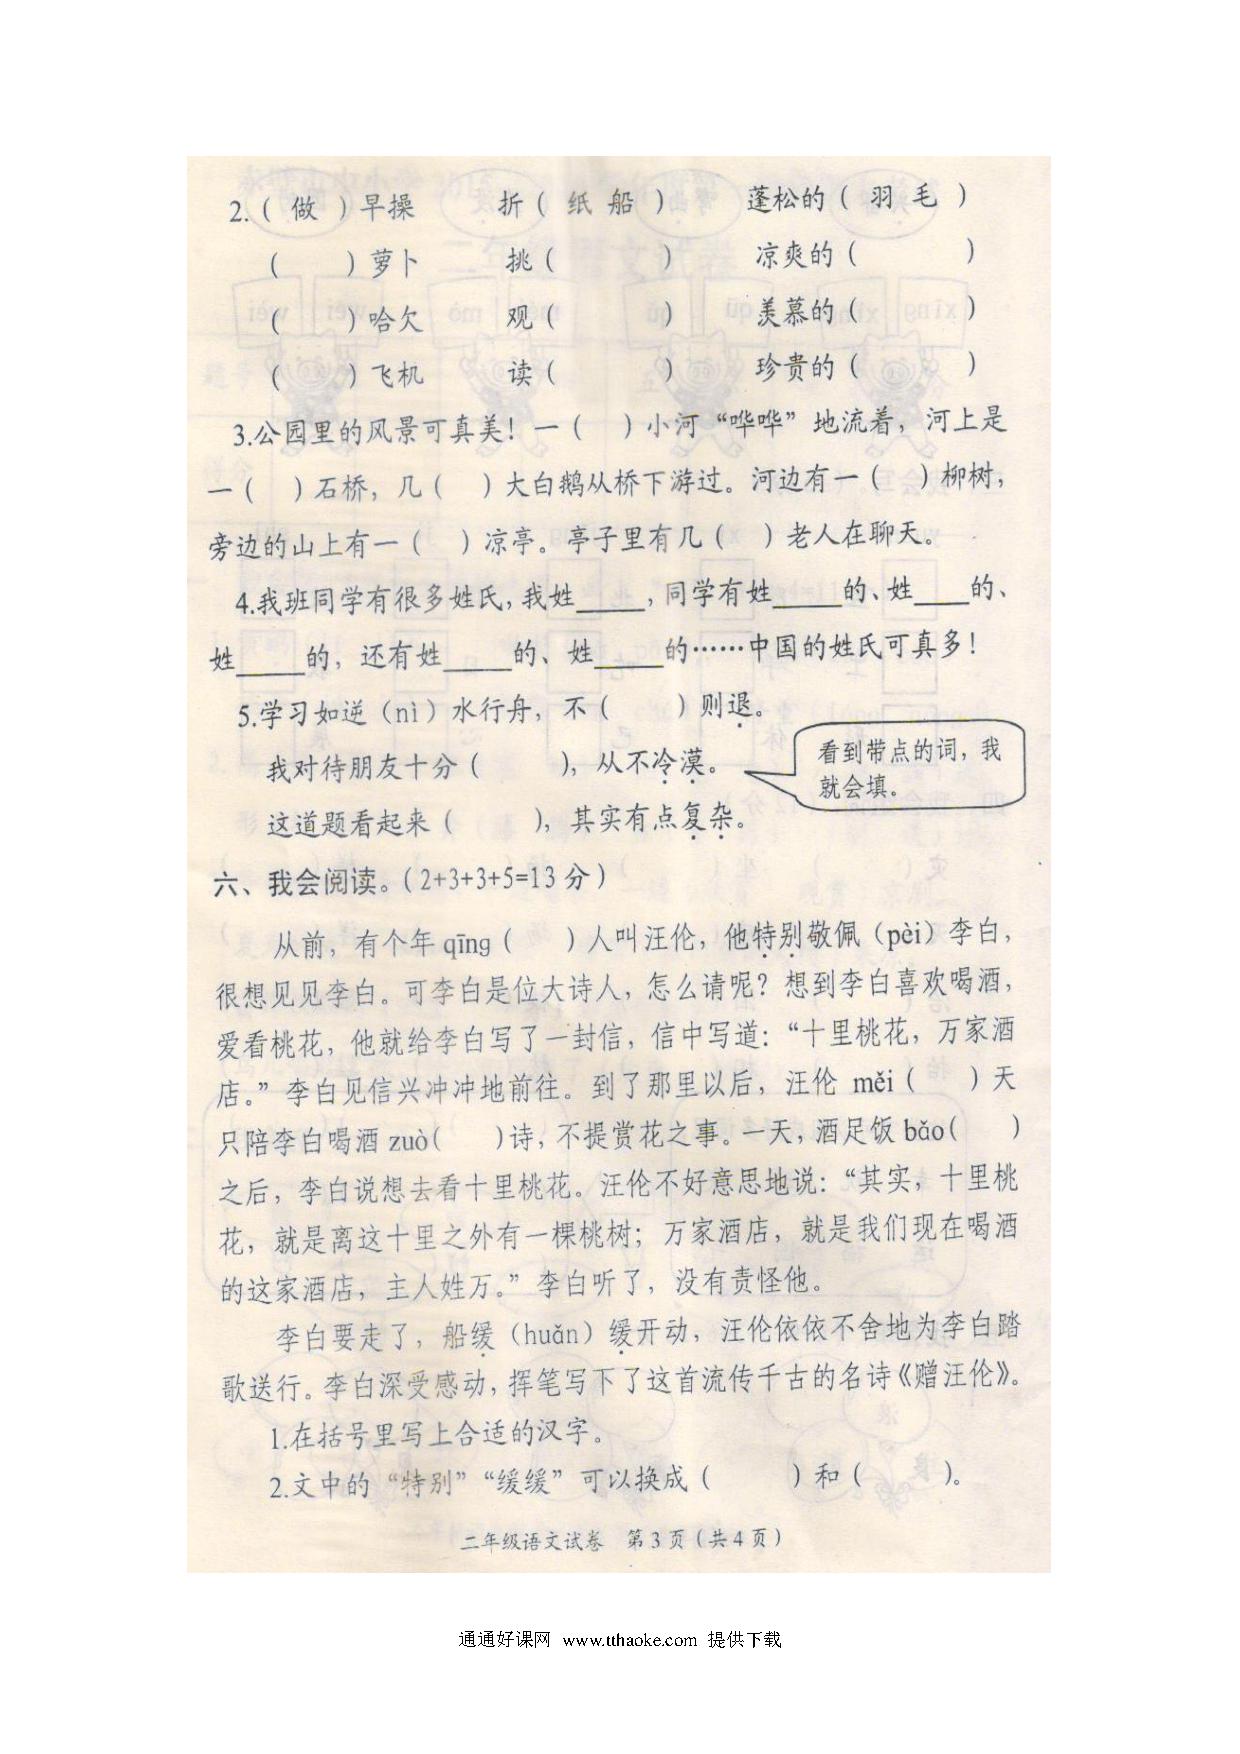 2.（ 做 ）早操 折（ 纸 船 ） 蓬松的（ 羽 毛 ）
（ ）萝卜 挑（ ） 凉爽的（ ）
（ ）哈欠 观（ ） 羡慕的（ ）
（ ）飞机 读（ ） 珍贵的（ ）
3.公园里的风景可真美！一（ ）小河“哗哗”地流着，河上是
一（ ）石桥，几（ ）大白鹅从桥下游过。河边有一（ ）柳树，
旁边的山上有一（ ）凉亭。亭子里有几（ ）老人在聊天。
4.我班同学有很多姓氏，我姓_____，同学有姓_____的、姓____的、
姓_____的，还有姓_____的、姓_____的……中国的姓氏可真多！
5.学习如逆（nì）水行舟，不（ ）则退。
我对待朋友十分（ ），从不冷漠。
看到带点的词，我
就会填。
这道题看起来（ ），其实有点复杂。
六、我会阅读。（2+3+3+5=13 分）
从前，有个年 qīng（ ）人叫汪伦，他特别敬佩（pèi）李白，
很想见见李白。可李白是位大诗人，怎么请呢？想到李白喜欢喝酒，
爱看桃花，他就给李白写了一封信，信中写道：“十里桃花，万家酒
店。”李白见信兴冲冲地前往。到了那里以后，汪伦 měi（ ）天
只陪李白喝酒 zuò（ ）诗，不提赏花之事。一天，酒足饭 bǎo（ ）
之后，李白说想去看十里桃花。汪伦不好意思地说：“其实，十里桃
花，就是离这十里之外有一棵桃树；万家酒店，就是我们现在喝酒
的这家酒店，主人姓万。”李白听了，没有责怪他。
李白要走了，船缓（huǎn）缓开动，汪伦依依不舍地为李白踏
歌送行。李白深受感动，挥笔写下了这首流传千古的名诗《赠汪伦》。
1.在括号里写上合适的汉字。
2.文中的“特别”“缓缓”可以换成（ ）和（ ）。
二年级语文试卷 第 3 页（共 4 页）
通通好课网 www.tthaoke.com 提供下载